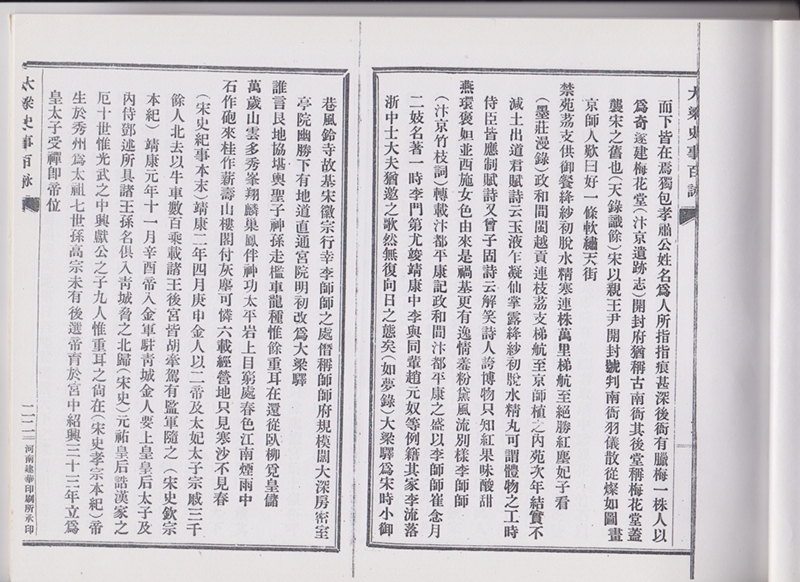 大梁史事百詠
而下皆在焉獨包孝肅公姓名爲人所指指痕甚深後衙有臘梅一株人以
爲奇遂建梅花堂（汴京遺跡志）開封府猶稱古南衙其後堂稱梅花堂蓋
襲宋之舊也（天錄識餘）宋以親王尹開封號判南衙羽儀散從燦如圖畫
京師人歎曰好一條軟繡天街
禁苑荔支供御餐絳紗初脫水精寒連株萬里梯航至絕勝紅塵妃子看
（墨莊漫錄）政和間閩越貢連枝荔支梯航至京師植之內苑次年結實不
減土出道君賦詩云玉液乍凝仙掌露絳紗初脫水精丸可謂體物之工時
侍臣皆應制賦詩又曾子固詩云解笑詩人誇博物只知紅果味酸甜
燕環褒妲並西施女色由來是禍基更有逸情羞粉黛風流別樣李師師
（汴京竹枝詞）轉載汴都平康記政和間汴都平康之盛以李師師崔念月
二妓名著一時李門第尤竣靖康中李與同輩趙元奴等例籍其家李流落
浙中士大夫猶邀之歌然無復向日之態矣（如夢錄）大梁驛爲宋時小御
巷風鈴寺故基宋徽宗行幸李師師之處僭稱師師府規模闊大深房密室
亭院幽勝下有地道直通宮院明初改爲大梁驛
誰言艮地協堪輿聖子神孫走檻車龍種惟餘重耳在還從臥柳兌皇儲
萬歲山雲多秀峯翔麟巢鳳倂神功太平岩上目窮處春色江南煙雨中
石作砲來桂作薪壽山樓閣付灰塵可憐六載經營地只見寒沙不見春
（宋史紀事本末）靖康二年四月庚申金人以二帝及太妃太子宗戚三千
餘人北去以牛車數百乘載諸王後宮皆胡牽駕有監軍隨之（宋史欽宗
本紀）靖康元年十一月辛酉帝入金軍駐青城金人要上皇皇后太子及
內侍鄧述所具諸王孫名俱入青城脅之北歸（宋史）元祐皇后誥漢家之
厄十世惟光武之中興獻公之子九人惟重耳之尙在（宋史孝宗本紀）帝
生於秀州爲太祖七世孫高宗未有後選帝育於宮中紹興三十三年立爲
皇太子受禪卽帝位
大梁史事百詠
二二
河南建華印刷所承印